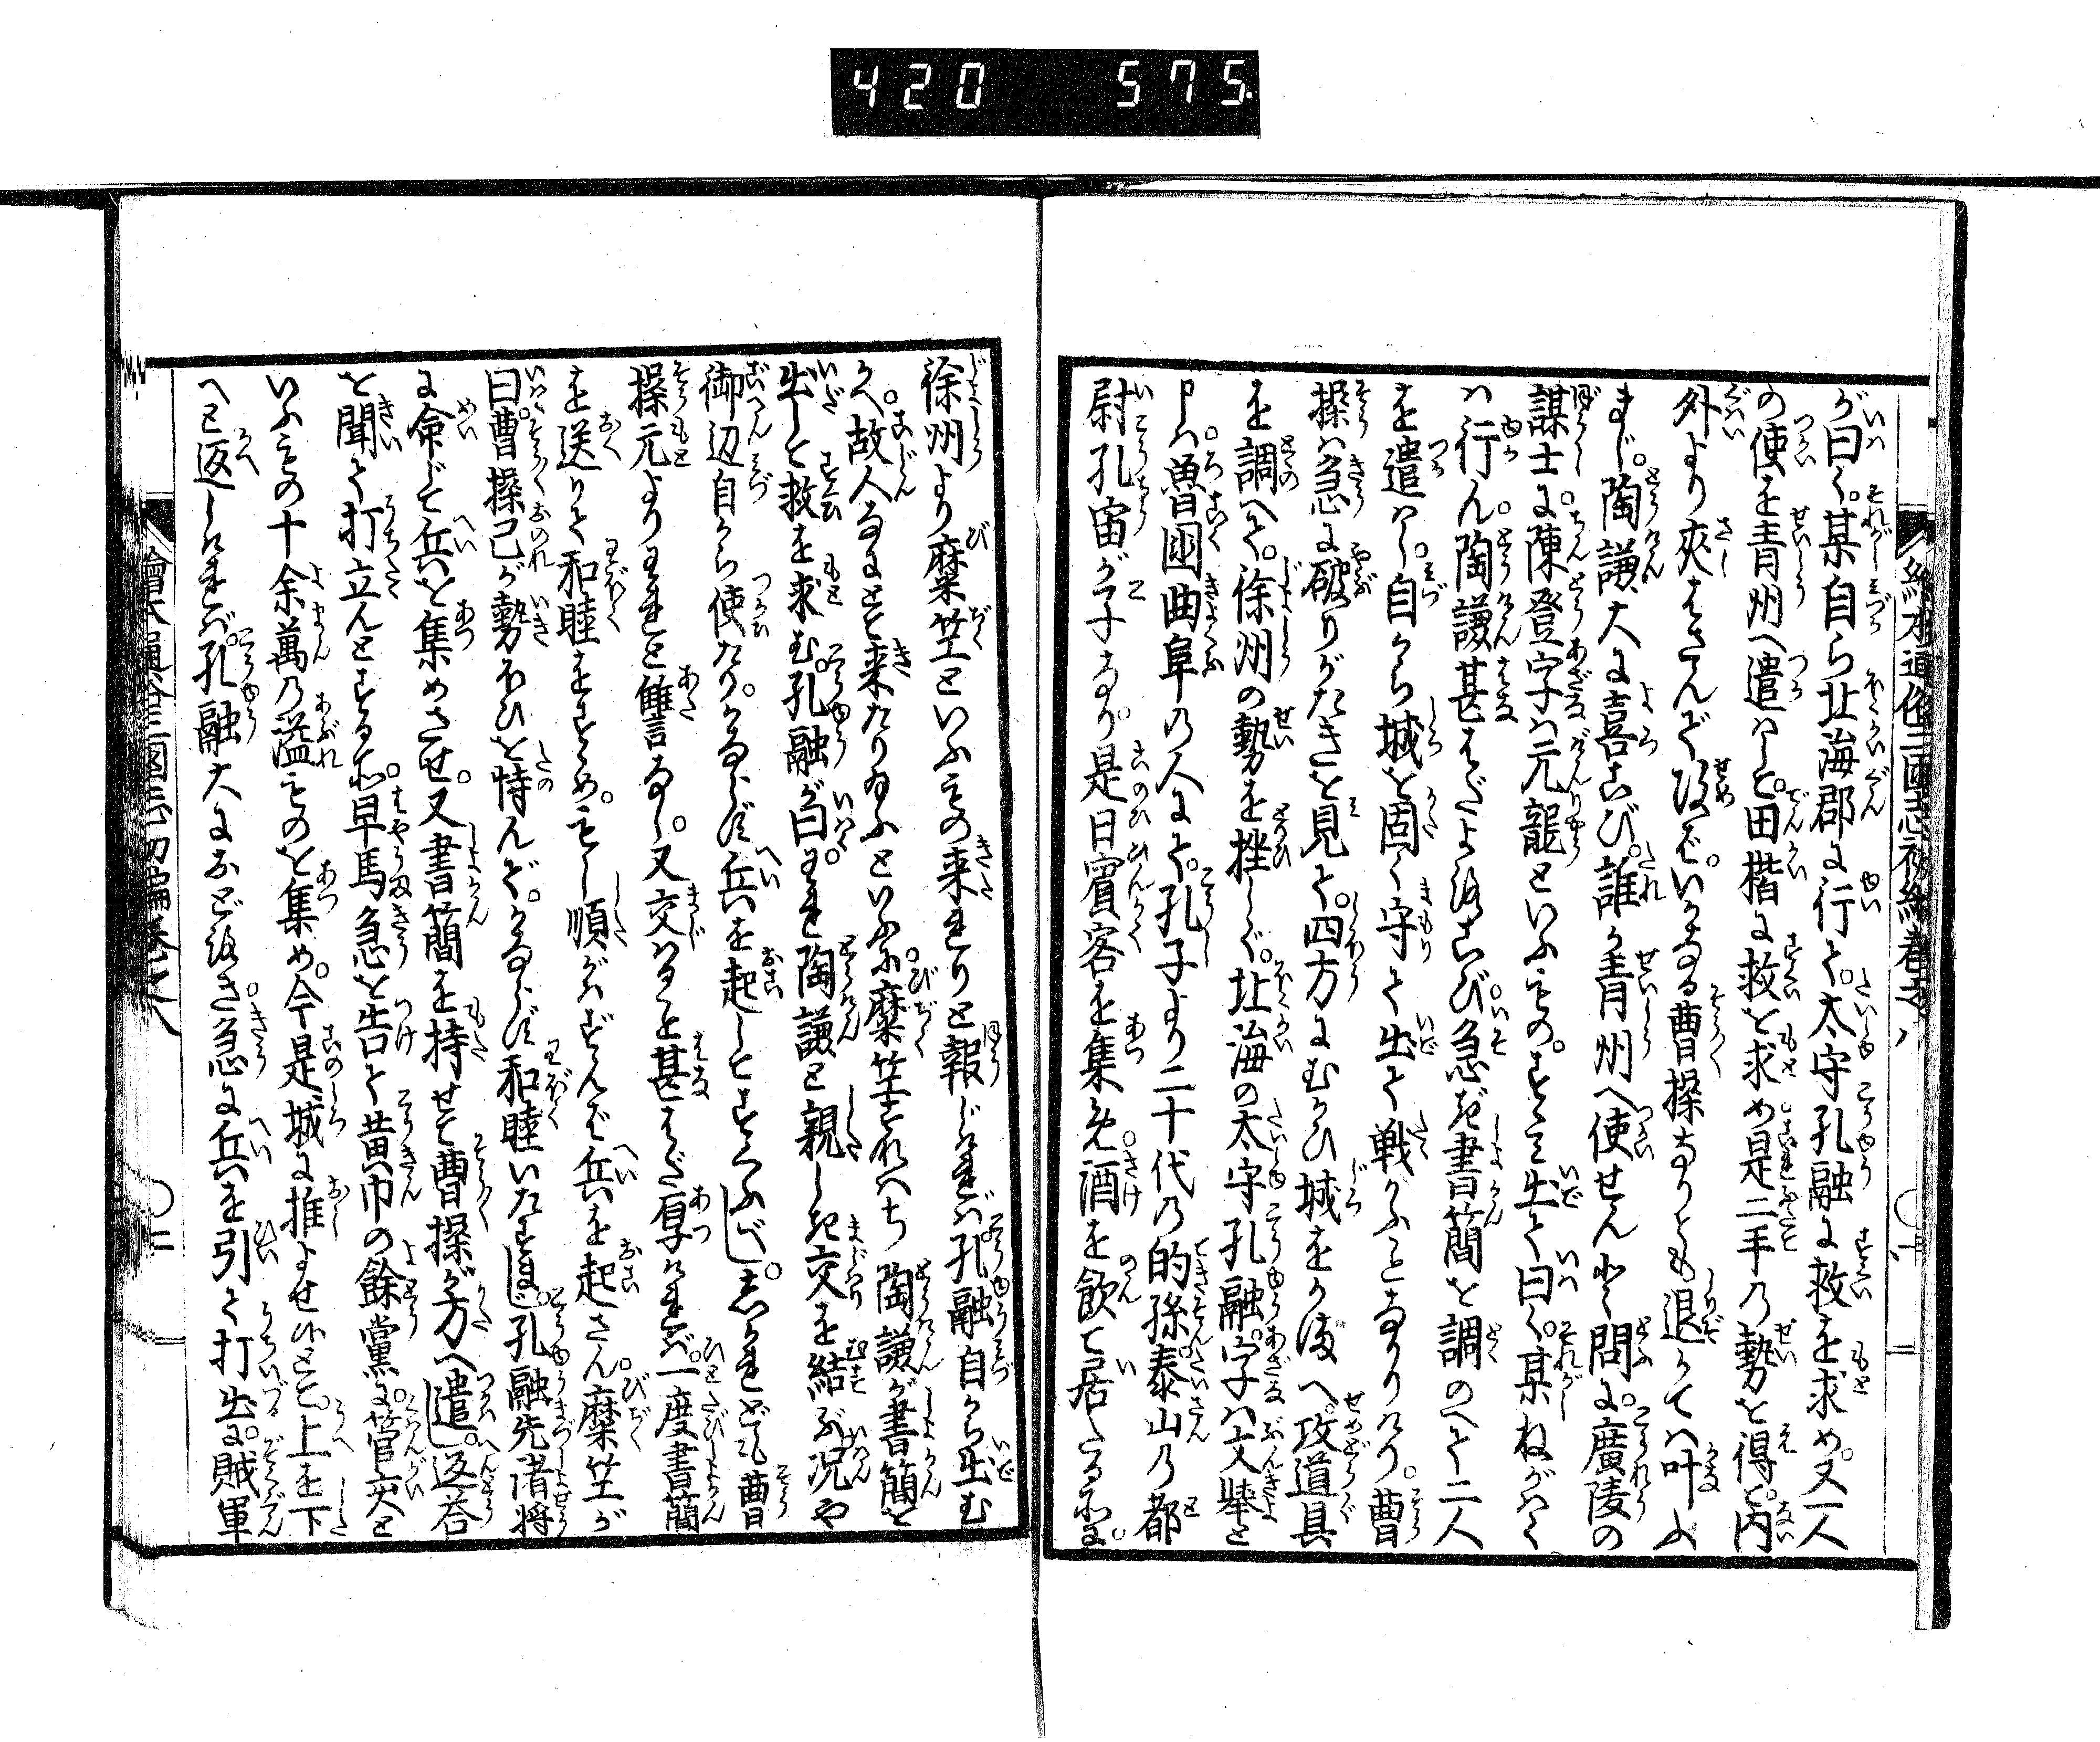 420 575.
繪本通俗三國志初編卷之八
が曰く。某自ら北海郡に行て。太守孔融に救を求め。又一人
の使を青州へ遣はして。田楷に救を求め是二手の勢を得て。内
外より夾はさんで攻めば。いかなる曹操なりとも退かでは叶ふ
まじ。陶謙大に喜こび。誰か青州へ使せんやと問に。廣陵の
謀士に。陳登字は元龍といふもの。すゝみ出て曰く。某ねがはく
は行ん。陶謙甚はだよろこび。急ぎ書簡を調のへて二人
を遣はし。自から城を固く守りて出て戦かふことなかりけり。曹
操は急に破りがたきを見て。四方にむかひ城をかまへ。攻道具
を調へて。徐州の勢を挫しぐ。北海の太守孔融。字は文擧と
申は。魯国曲阜の人にて。孔子より二十代の的孫。泰山の都
尉孔宙が子なり。是日賓客を集め。酒を飲で居たる所に。
徐州より糜竺といふもの来れりと報じければ。孔融自から出む
かへ。故人なにとて来たり給ふといふに。糜竺すなはち陶謙が書簡を
出して救を求む。孔融が曰。われ陶謙と親しき交を結ぶ。况や
御辺自から使たり。かならず兵を起してすくふべし。志かれども曹
操元よりわれと讐なし。又交はること甚はだ厚ければ。一度書簡
を送りて和睦をすゝめ。もし順がはずんば兵を起さん。糜竺が
曰。曹操己が勢ひを恃んで。かならず和睦いたすまじ。孔融先諸将
に命じて兵を集めさせ。又書簡を持せて曹操が方へ遣し。返答
を聞て打立んとする所。早馬急を告て黄巾の餘黨に。管亥と
いふもの十余萬の溢ものを集め。今是城に推よせ候とて。上を下
へと返しければ。孔融大におどろき。急に兵を引て打出に。賊軍
繪本通俗三國志初編卷之八